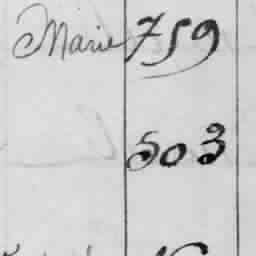 Marie 759
503